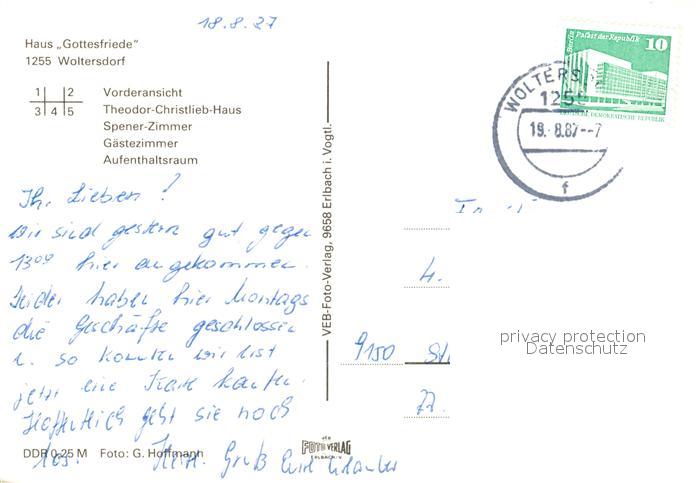 18.8.87
Haus „Gottesfriede"
1255 Woltersdorf
1 2
3 4 5
Vorderansicht
Theodor-Christlieb-Haus
Spener-Zimmer
Gästezimmer
Aufenthaltsraum
Berlin Palast der Republik
10
DEUTSCHE DEMOKRATISCHE REPUBLIK
WOLTERS
125
19.-8.87--7
f
Ihr Lieben!
Wir sind gestern gut gegen
13⁰⁰ hier angekommen.
Leider haben hier Montags
die Geschäfte geschlossen
u. so konnten wir erst
jetzt eine Karte kaufen.
Hoffentlich geht sie noch
los. Herzl. Gruß Eure Urlauber
VEB-Foto-Verlag, 9658 Erlbach i. Vogtl.
4.
9150
77.
privacy protection
Datenschutz
DDR 0-25 M Foto: G. Hoffmann
VEB
FOTO VERLAG
ERLBACH/V.